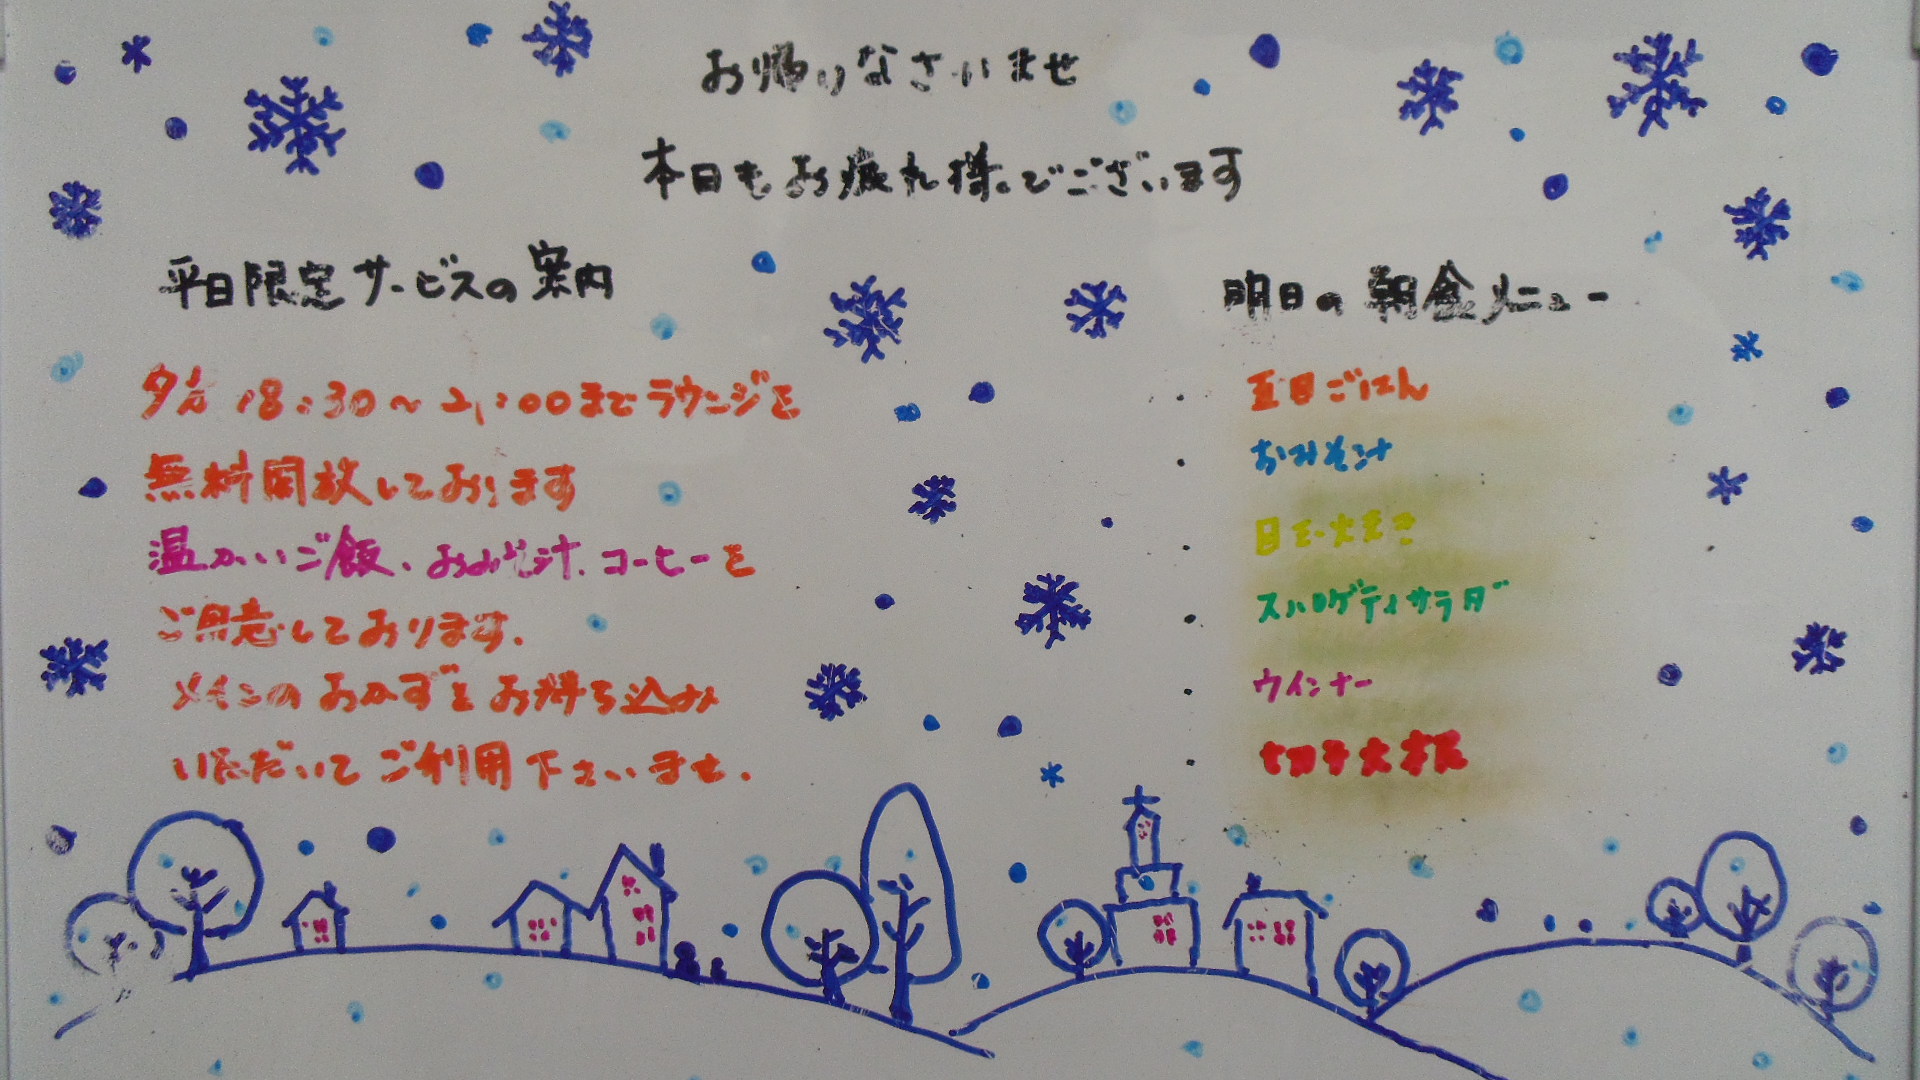 お帰りなさいませ
本日もお疲れ様でございます
平日限定サービスの案内
夕方18:30～21:00までラウンジを
無料開放しております
温かいご飯、おみそ汁、コーヒーを
ご用意しております.
メインのおかずをお持ち込み
いただいてご利用下さいませ.
明日の朝食メニュー
・五目ごはん
・おみそ汁
・目玉焼き
・スパゲティサラダ
・ウインナー
・切干大根